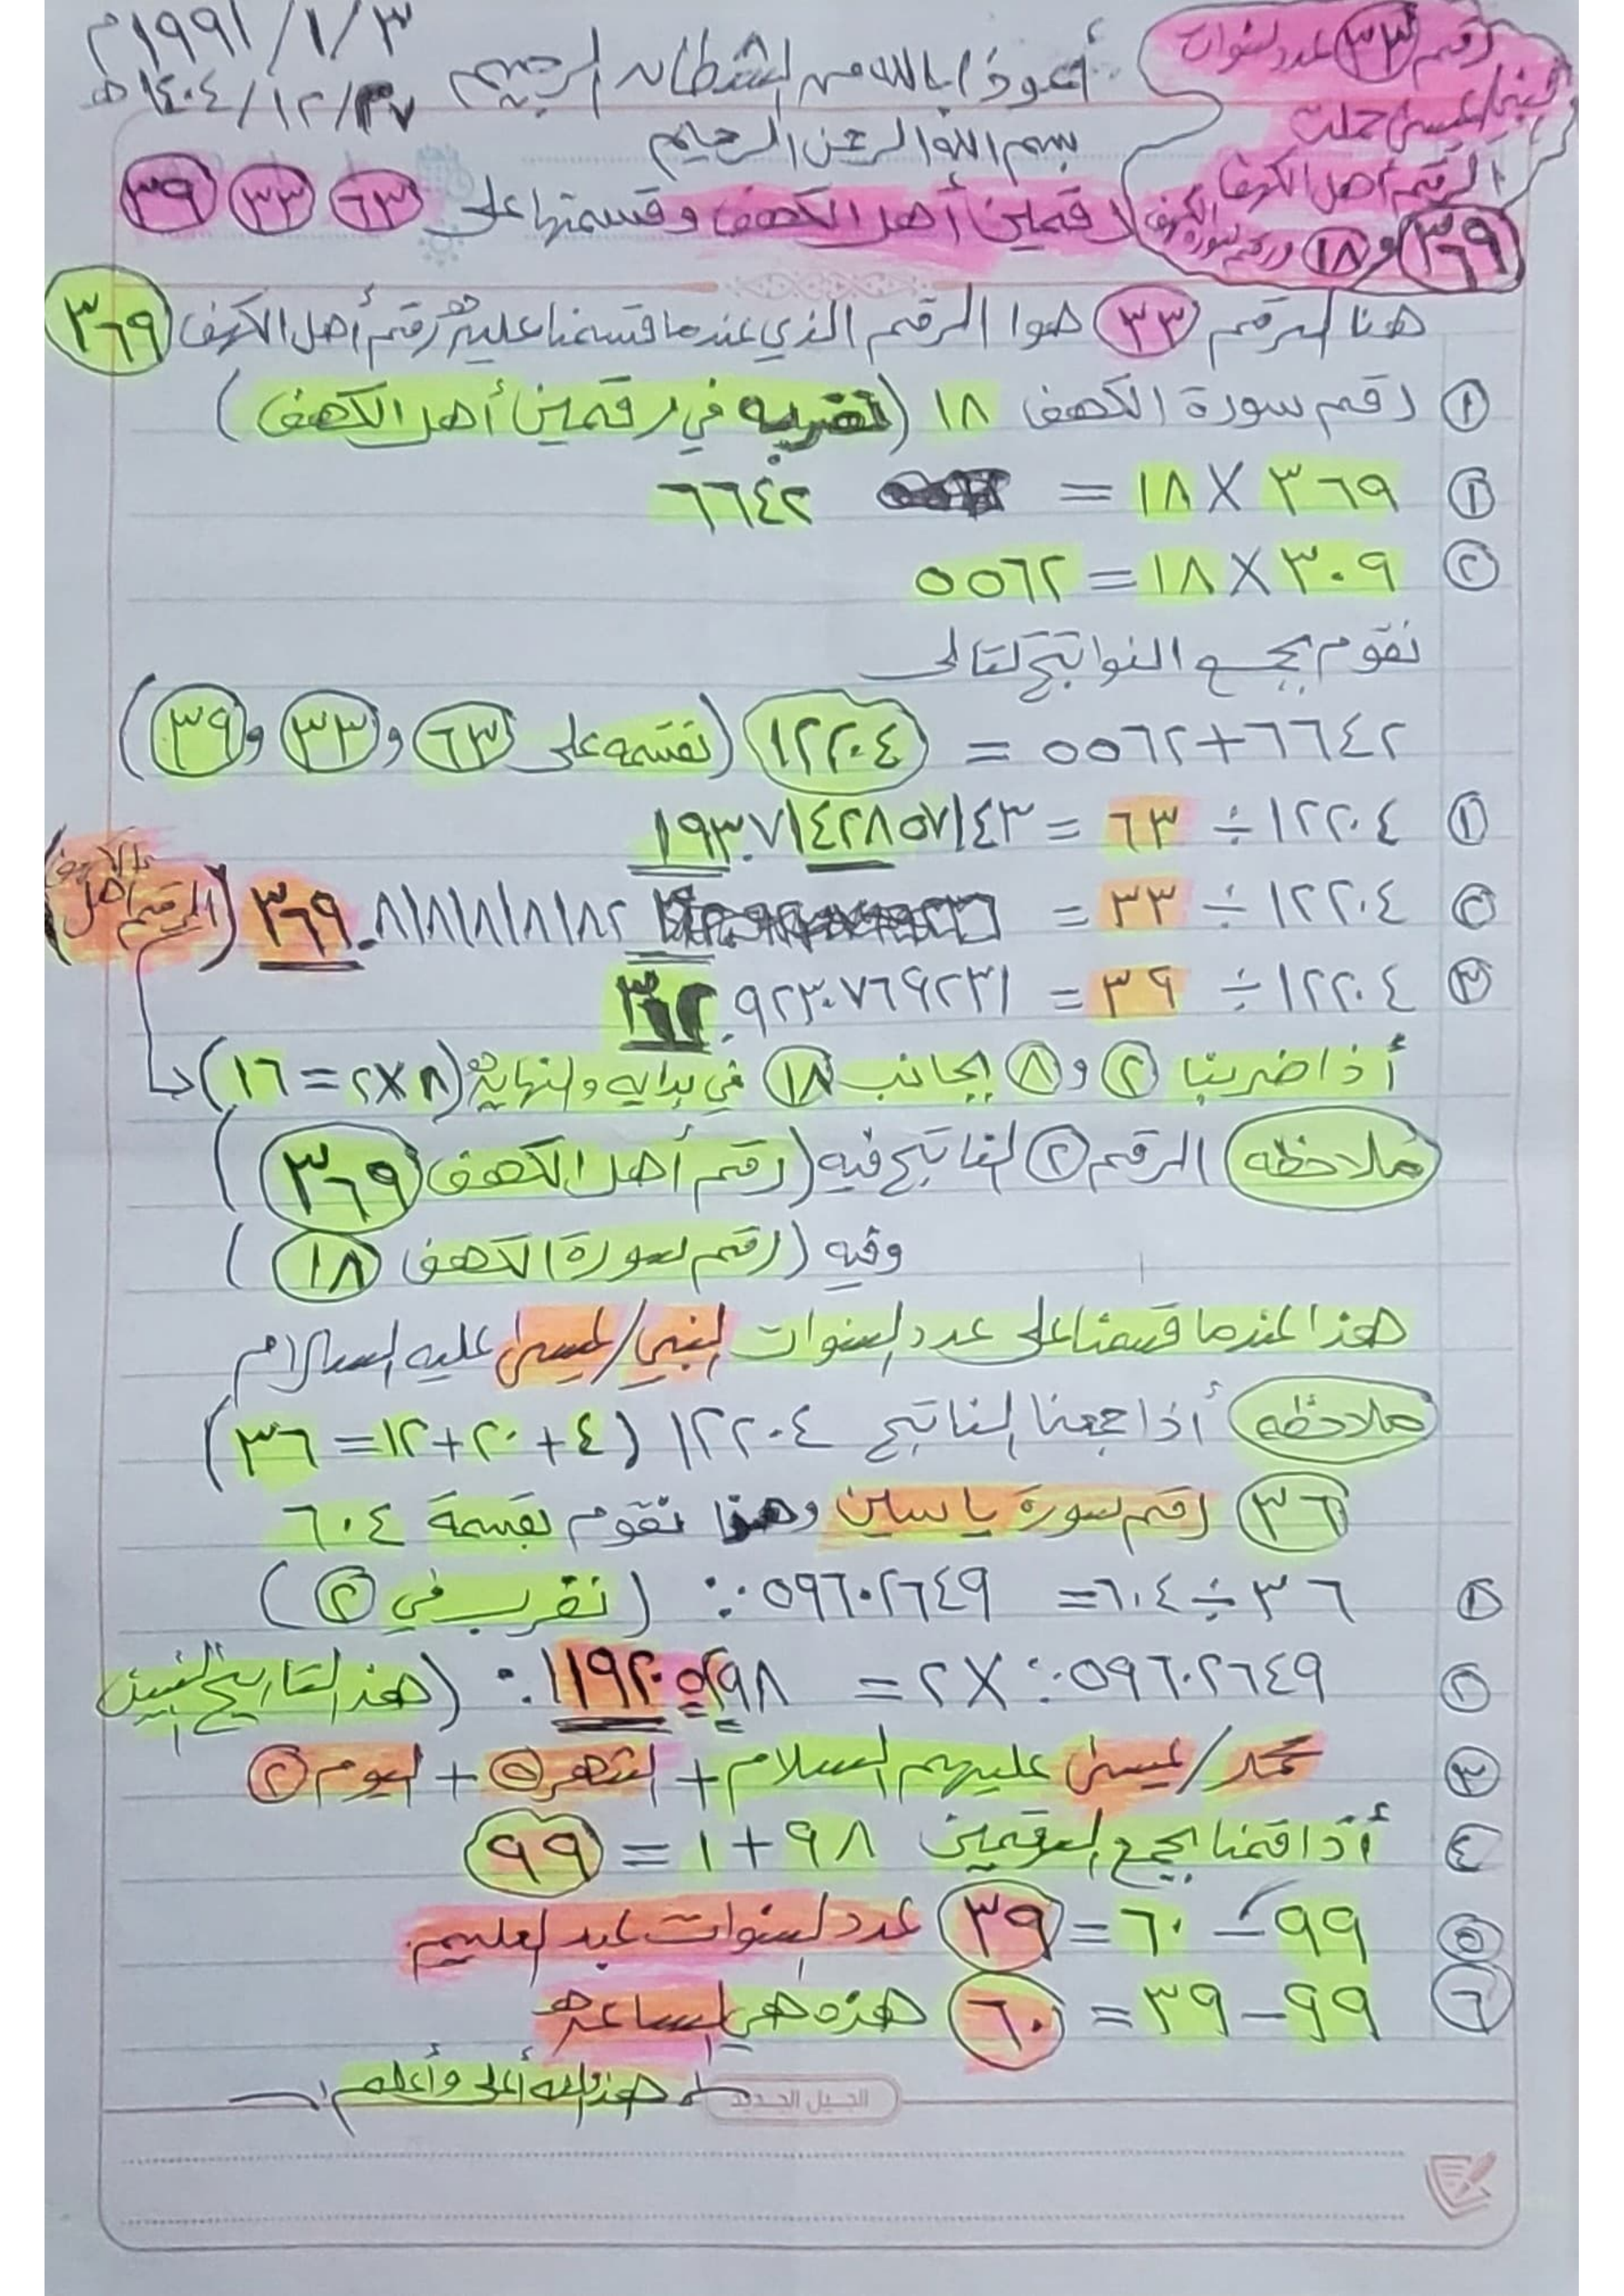 ١٩٩١/١/٣م
١٤٠٤/١٢/٢٧هـ
أعوذ بالله من الشطان الرجيم
بسم الله الرحمن الرحيم
رقم ٣٣ عدد سنوات
النبي/عيسى حملت
الرقم أهل الكهف
٣٦٩ و ١٨ ورقم سورة الكهف
رقمين أهل الكهف وقسمتها على ٦٣ ٣٣ ٣٩
هنا الرقم ٣٣ هوا الرقم الذي عندما قسمنا عليه رقم أهل الكهف ٣٦٩
١ رقم سورة الكهف ١٨ (نضربه في رقمين أهل الكهف)
١ ٣٦٩ × ١٨ = ٦٦٤٢
٢ ٣٠٩ × ١٨ = ٥٥٦٢
نقوم بجمع النواتج كتالى
٦٦٤٢+٥٥٦٢ = ١٢٢٠٤ (نقسمه على ٦٣ و ٣٣ و ٣٩)
١ ١٢٢٠٤ ÷ ٦٣ = ١٩٣.٧١٤٢٨٥٧١٤٣
٢ ١٢٢٠٤ ÷ ٣٣ = ٣٦٩.٨١٨١٨١٨١٨٢ (الرقم أهل الكهف)
٣ ١٢٢٠٤ ÷ ٣٩ = ٣١٢.٩٢٣٠٧٦٩٢٣١
أذا ضربنا ٢ و ٨ بجانب ١٨ في بدايه والنهاية (٨×٢ = ١٦)
ملاحظه الرقم ٢ الناتج فيه (رقم أهل الكهف ٣٦٩)
وفيه (رقم سورة الكهف ١٨)
هذا عندما قسمنا على عدد السنوات النبي/عيسى عليه السلام
ملاحظه أذا جمعنا الناتج ١٢٢٠٤ (٤+٢٠+١٢=٣٦)
٣٦ رقم سورة ياسين وهنا نقوم بقسمة ٦٠٤
١ ٣٦ ÷ ٦٠٤ = ٠.٠٥٩٦٠٢٦٤٩ (نضرب في ٢)
٢ ٠.٠٥٩٦٠٢٦٤٩ × ٢ = ٠.١١٩٢٠٥٢٩٨ (هذا التاريخ النبيين
٣ محمد/عيسى عليهم السلام + الشهر ٥ + اليوم ٢
٤ أذا قمنا بجمع الرقمين ٩٨ + ١ = ٩٩
٥ ٩٩ – ٦٠ = ٣٩ عدد السنوات عبد العليم.
٦ ٩٩ – ٣٩ = ٦٠ هذه هي الساعة
هذا والله أعلى وأعلم
الجيل الجديد